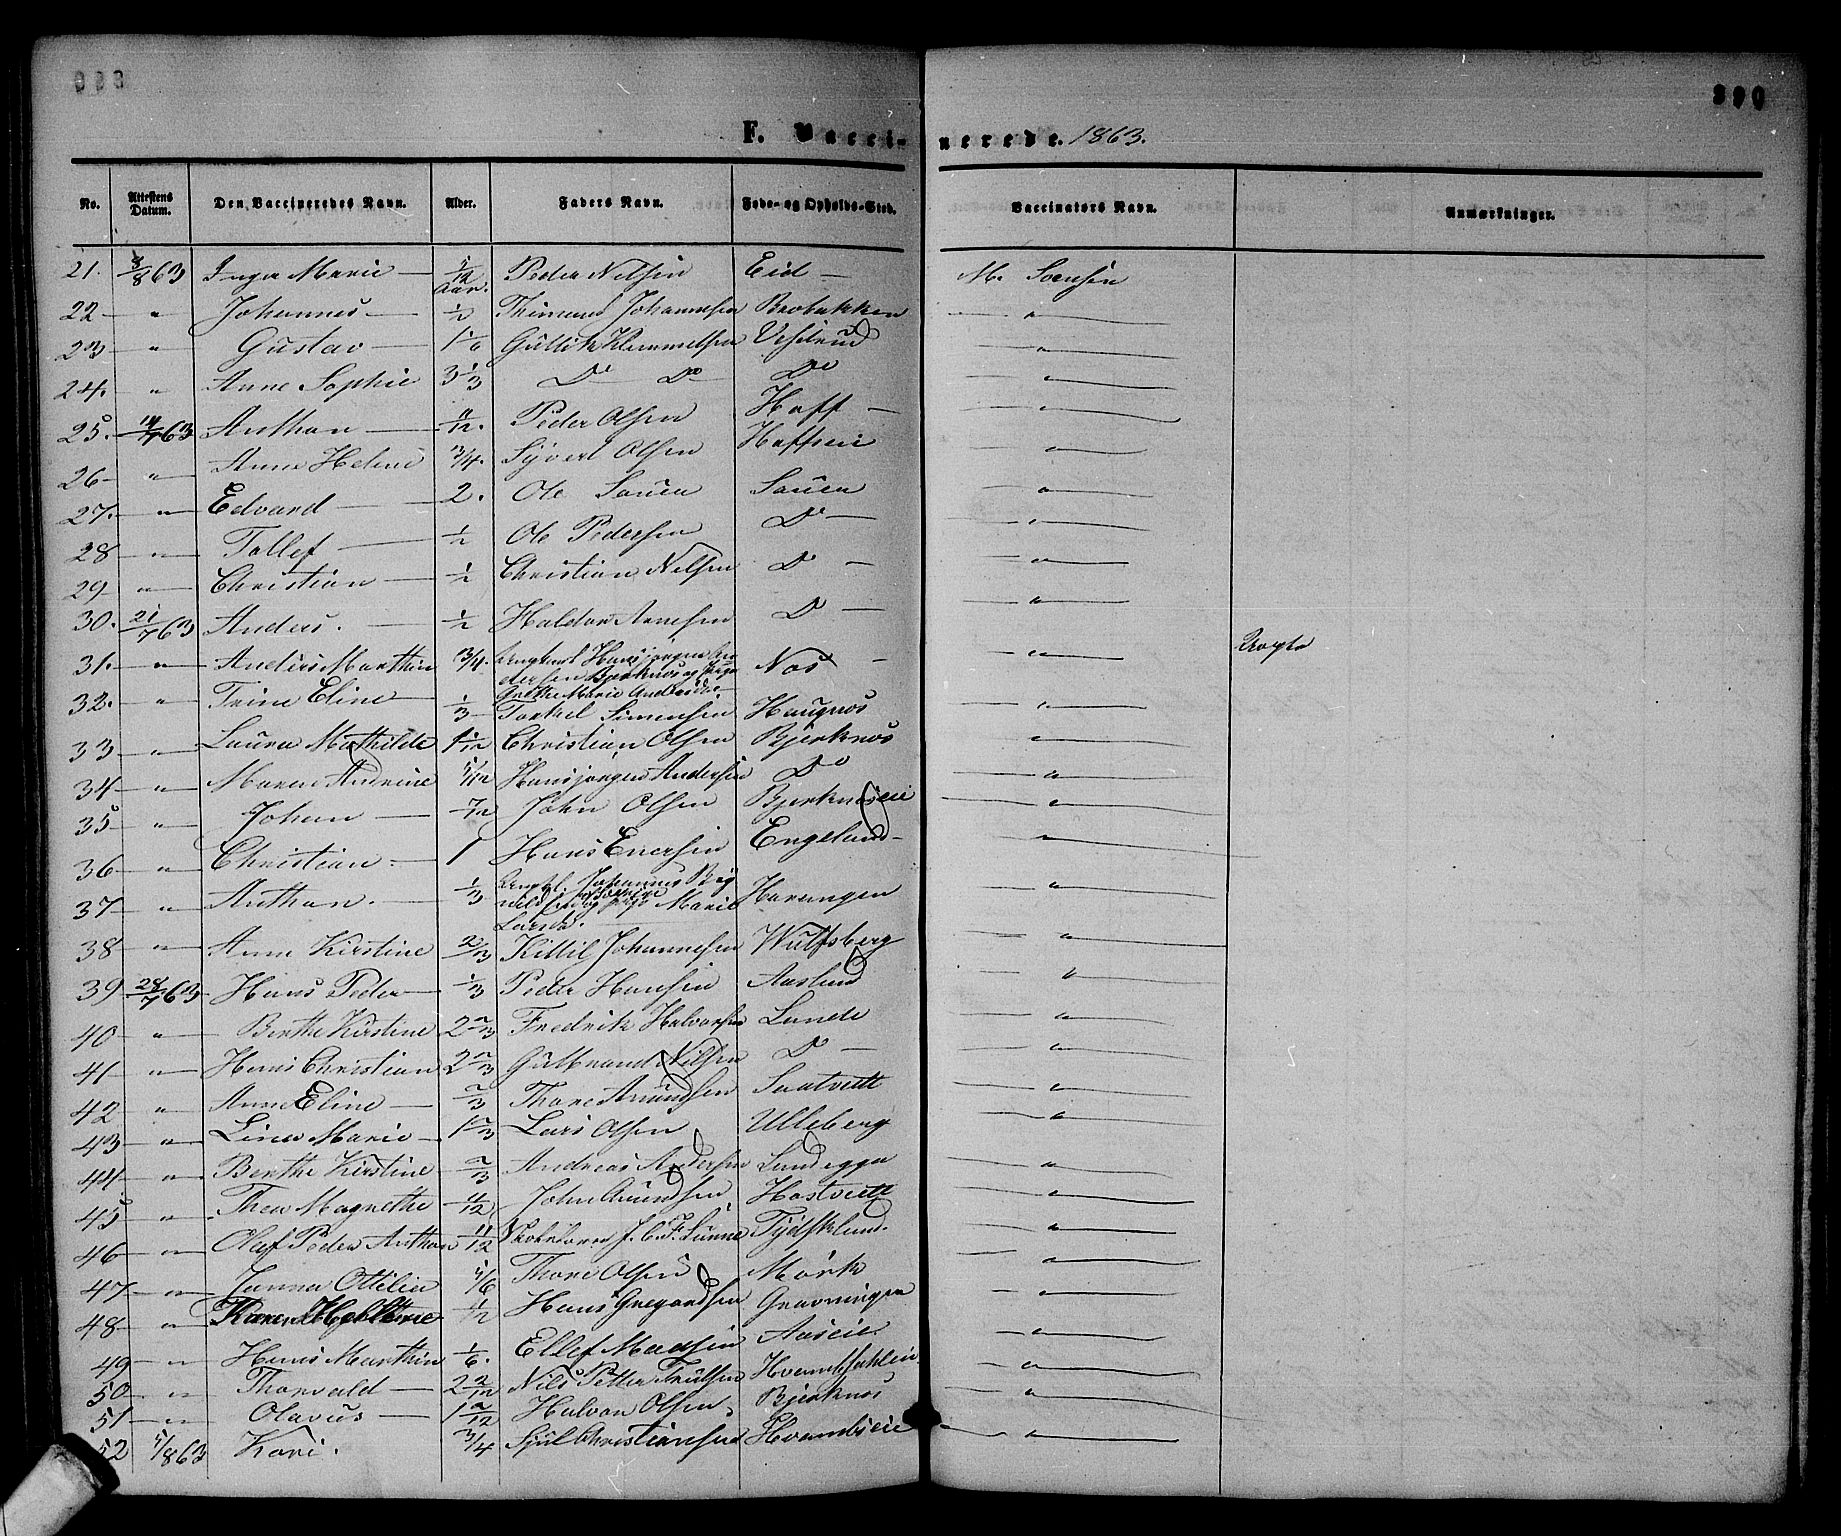 390
F. Vacci- nerede. 1863.
No. Attestens Datum. Den Vaccineredes Navn. Alder. Faders Navn. Føde- og Opholds-Sted. Vaccinators Navn. Anmærkninger.
21. 8/8 63 Inger Marie — 5/12 Aar. Peder Nilsen Eid — M. Sørensen
22 — " Johannes — 1/2 Johannesen Brobakken — " —
23 — " Gustav — 1 1/6 Gullik Klemmetsen Veslerud — " —
24. " Anne Sophie 3 1/3 Do Do Do — " —
25. 14/7 63 Anthon — 11/12. Peder Olsen Hoff — — " —
26 — " Anne Heline 3/4. Syverl Olsen Hoffseie — " —
27. — " — Edvard — 2. Ole Sønen Sønen — " —
28 — " — Tollef — 1/2 Ole Pedersen Do — — " —
29 — " — Christian — 1/2 Christian Nilsen Do — — " —
30. 21/7 63 Anders. — 1/2 Haldor Arnesen Do — — " —
31. — " — Anders Marthin 3/4. Ungkarl Hansjørgen An
dersen Bjerknæs og Pige
Grethe Marie Andersdr. Næs — — " —
32. — " Trine Eline — 1/3 Torkel Simensen Haugnæs — " —
33 — " — Laura Mathilde 1 1/12 Christian Olsen Bjerknæs — " —
34 — " — Maren Andrine 5/12 Hansjørgen Andersen Do — " —
35 — " — Johan — 7/12 John Olsen Bjerknæseie — " —
36 — " Christian — 1 Hans Enersen Engelund — — " —
37 — " Anthon. — 1/3 Johannes
Marie
Larsd. Horungen — " —
38 — " — Anne Kirstine 2/3 Kittil Johannesen Wulfsberg — " —
39 28/7 63 Hans Peder — 1/3 Peder Hansen Aaslund — " —
40 — " — Berthe Kirstine 2 2/3 Fredrik Halvorsen Lunde — " —
41 — " — Hans Christian 2 2/3 Gulbrand Nilsen Do — — " —
42 — " — Anne Eline — 2/3 Thore Amundsen Saatvedt — " —
43 — " — Lina Marie — 1 2/3 Lars Olsen Ulleberg — " —
44 — " — Berthe Kirstine 2/3 Andreas Andersen Lundeggen — " —
45 — " — Thea Magnethe 4/12 John Amundsen Hostvedt — " —
46 — " — Olaf Peder Anthon 11/12 Skolelærer J. C. F. Lunne Tydsklund. — " —
47 — " — Janna Ottilia 5/6 Thore Olsen Mørk — " —
48 — " — Karen 1/2 Hans Gregardsen Gravningen — " —
49 — " — Hans Marthin 1/6. Ellef Madsen Aaseie. — " —
50 — " — Thorvald — 2 2/12 Nils Petter Trulsen — " —
51 — " — Olavus — 1 2/12 Halvor Olsen Bjerknæs — " —
52 5/8 63 Kari. 3/4 Sjul Christiansen Hvambseie — " —